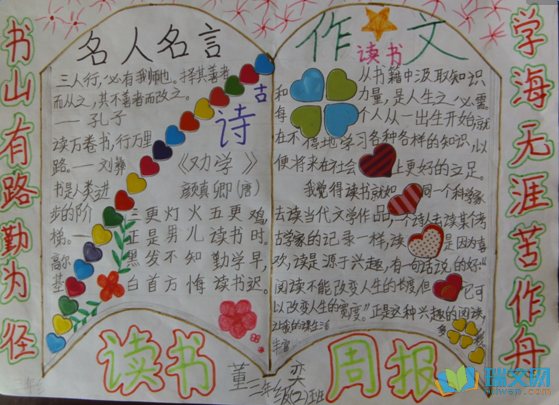 书山有路勤为径
学海无涯苦作舟
名人名言
三人行,必有我师也。择其善者
而从之,其不善者而改之。
——孔子
读万卷书,行万里
路。——刘彝
书是人类进
步的阶
梯。——
高尔
基
古
诗
《劝学》
颜真卿(唐)
三更灯火五更鸡,
正是男儿读书时。
黑发不知勤学早,
白首方悔读书迟。
作文
读书
从书籍中汲取知识
和力量,是人生之必需
每个人从一出生开始,就
在不停地学习各种各样的知识,以
便将来在社会上更好的立足。
我觉得读书就如同一个科学家
去读当代文学作品,一个诗人去读某考
古学家的记录一样,读是因为喜
欢,读是源于兴趣,有一句话说的好:“
阅读不能改变人生的长度,但它可
以改变人生的宽度。”正是这种兴趣的阅读,
丰富
多
读书周报
董奕
二年级(2)班
瑞文网